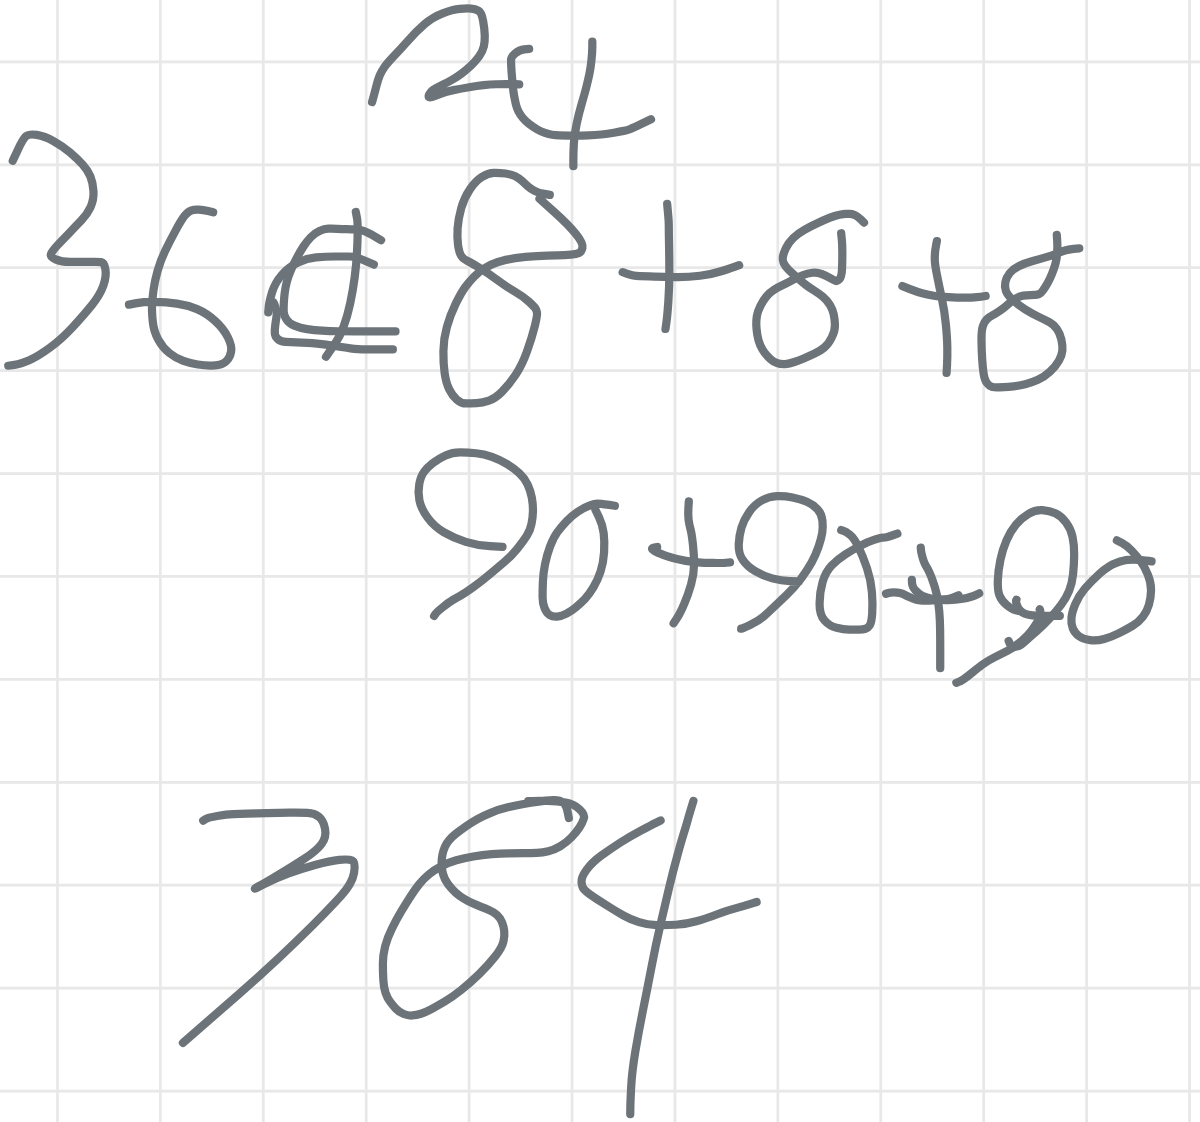 24
36 8+8+8
90+90+90
384